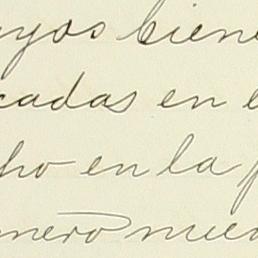 ayos biene
cadas en e
ho en la p
nero mue